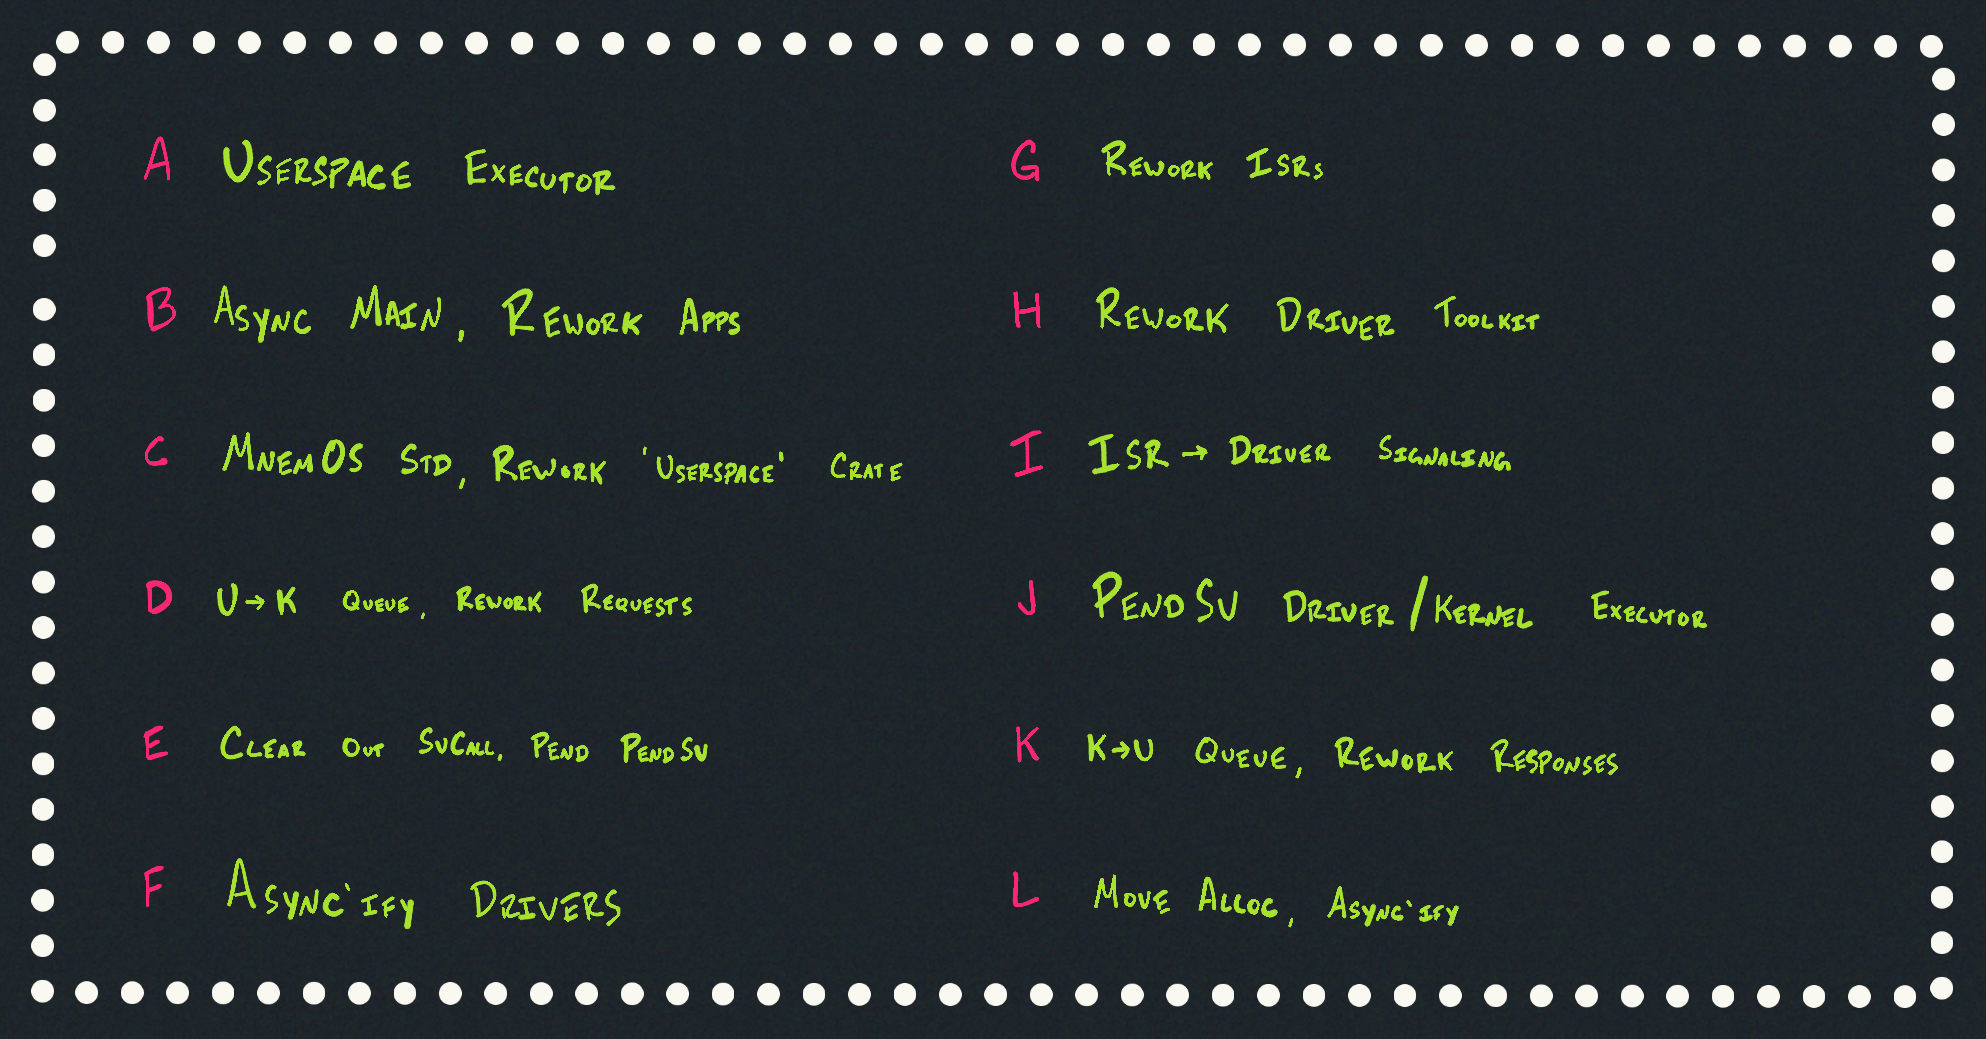 A Userspace Executor
B Async Main, Rework Apps
C MnemOS Std, Rework 'Userspace' Crate
D U→K Queue, Rework Requests
E Clear Out SVCall, Pend PendSV
F Async'ify Drivers
G Rework ISRs
H Rework Driver Toolkit
I ISR→Driver Signaling
J PendSV Driver/Kernel Executor
K K→U Queue, Rework Responses
L Move Alloc, Async'ify